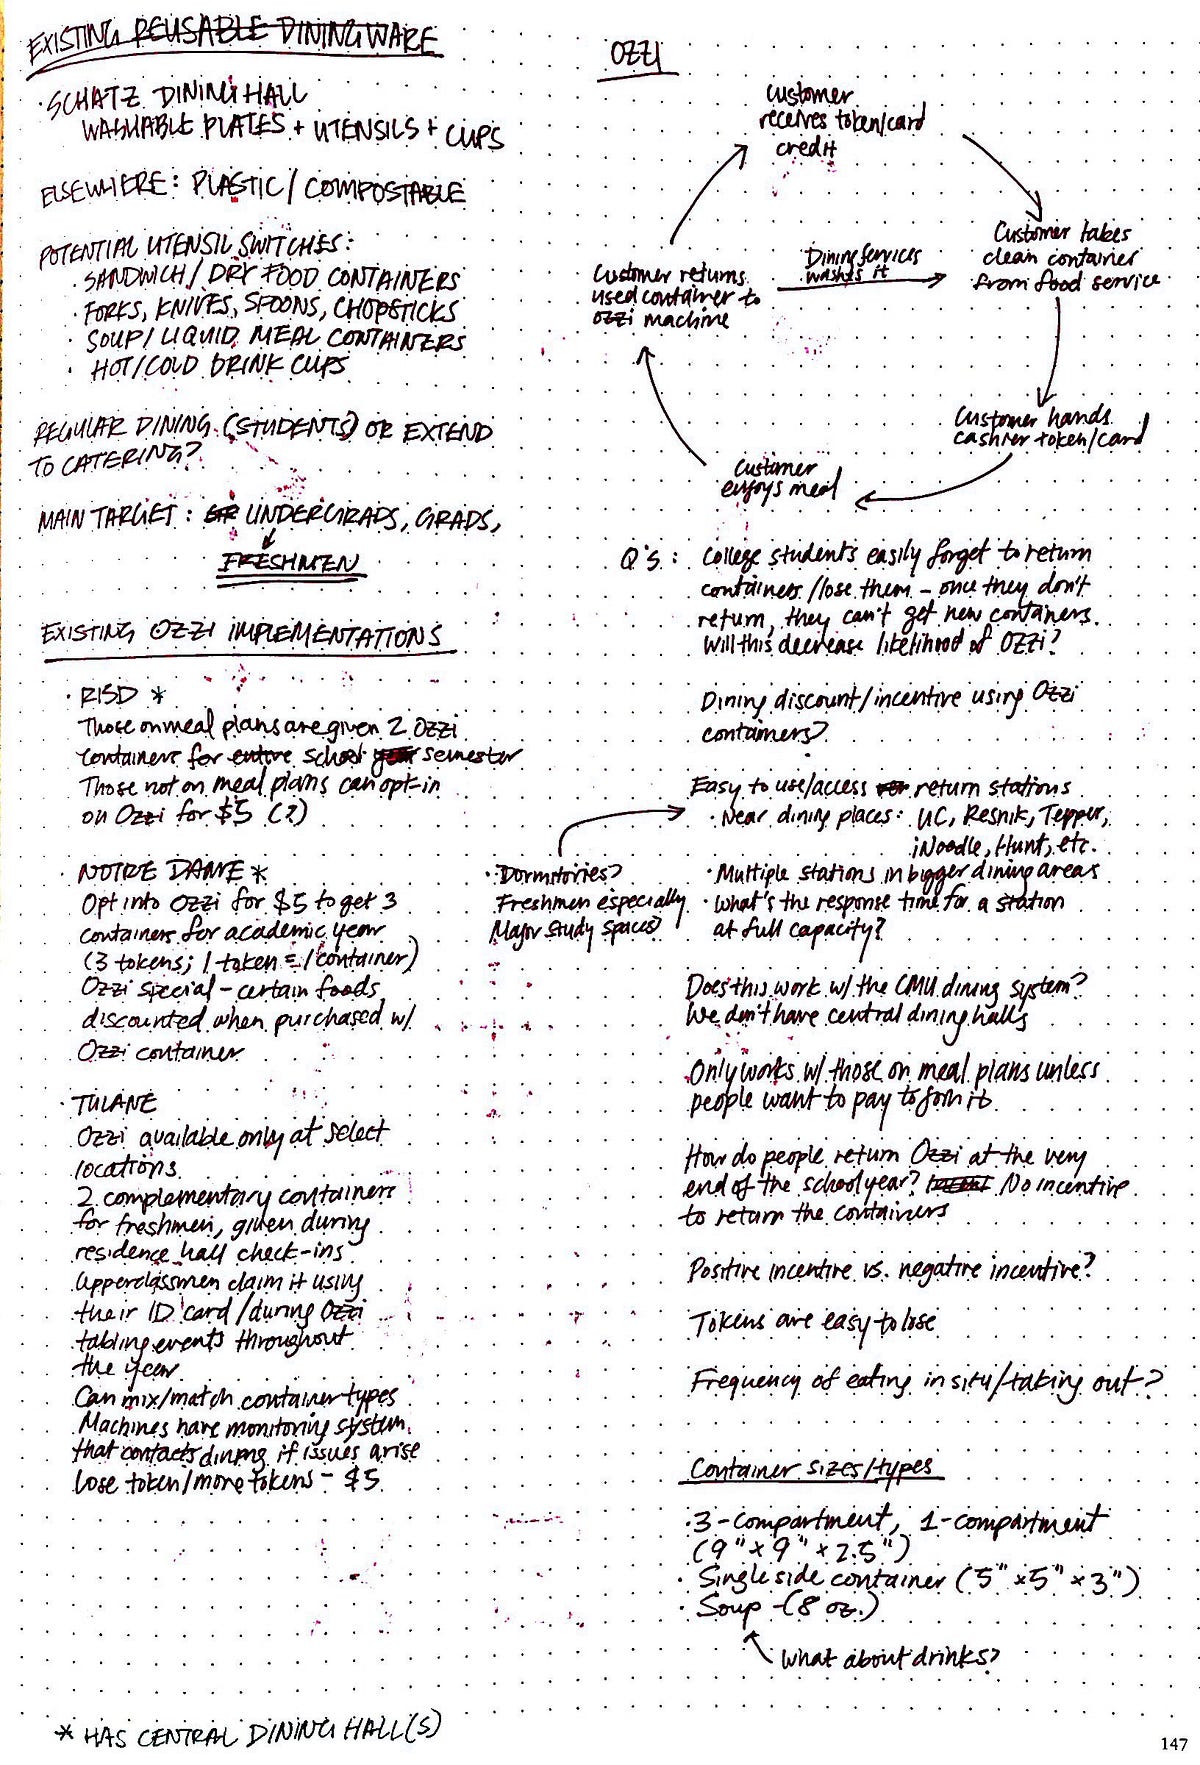 EXISTING REUSABLE DININGWARE
· SCHATZ DINING HALL
WASHABLE PLATES + UTENSILS + CUPS
ELSEWHERE: PLASTIC / COMPOSTABLE
POTENTIAL UTENSIL SWITCHES:
· SANDWICH / DRY FOOD CONTAINERS
· FORKS, KNIVES, SPOONS, CHOPSTICKS
· SOUP / LIQUID MEAL CONTAINERS
· HOT/COLD DRINK CUPS
REGULAR DINING (STUDENTS) OR EXTEND
TO CATERING?
MAIN TARGET: GR UNDERGRADS, GRADS,
FRESHMEN
EXISTING OZZI IMPLEMENTATIONS
· RISD *
Those on meal plans are given 2 Ozzi
containers for entire school year semester
Those not on meal plans can opt-in
on Ozzi for $5 (?)
· NOTRE DAME *
Opt into Ozzi for $5 to get 3
containers for academic year
(3 tokens; 1 token = 1 container)
Ozzi special – certain foods
discounted when purchased w/
Ozzi container
· TULANE
Ozzi available only at select
locations
2 complementary containers
for freshmen, given during
residence hall check-ins
Upperclassmen claim it using
their ID card / during Ozzi
tabling events throughout
the year
Can mix/match container types
Machines have monitoring system
that contacts dining if issues arise
Lose token/more tokens – $5
* HAS CENTRAL DINING HALL(S)
OZZI
Customer
receives token/card
credit
Customer takes
clean container
from food service
Dining Services
washes it
Customer returns
used container to
OZZI machine
Customer hands
cashier token/card
Customer
enjoys meal
Q'S: College students easily forget to return
containers / lose them – once they don't
return, they can't get new containers.
Will this decrease likelihood of OZZI?
Dining discount/incentive using Ozzi
containers?
Easy to use/access return stations
· Near dining places: UC, Resnik, Tepper,
iNoodle, Hunt, etc.
· Multiple stations in bigger dining areas
· What's the response time for a station
at full capacity?
· Dormitories?
Freshmen especially
Major study spaces?
Does this work w/ the CMU dining system?
We don't have central dining halls
Only works w/ those on meal plans unless
people want to pay to join it
How do people return Ozzi at the very
end of the school year? No incentive
to return the containers
Positive incentive vs. negative incentive?
Tokens are easy to lose
Frequency of eating in situ/taking out?
Container sizes/types
· 3-compartment, 1-compartment
(9" x 9" x 2.5")
· Single side container (5" x 5" x 3")
· Soup – (8 oz.)
What about drinks?
147